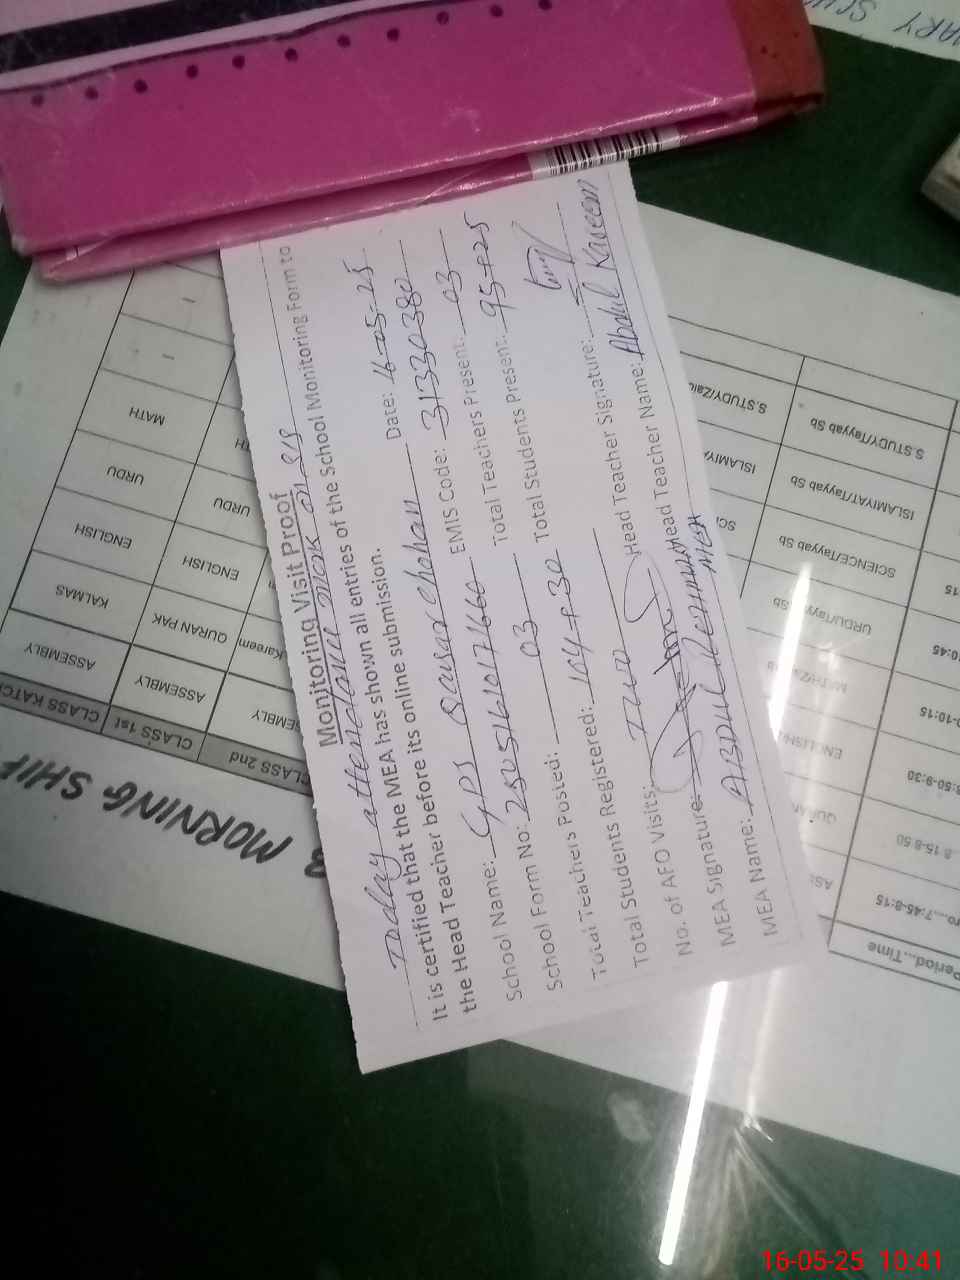 Monitoring Visit Proof
Today attendance mark on SIS
It is certified that the MEA has shown all entries of the School Monitoring Form to
the Head Teacher before its online submission.
Date: 16-05-25
School Name: GPS
EMIS Code: 31330380
School Form No:
Total Teachers Present: 03
Total Teachers Posted: 03
Total Students Present: 95+25
Total Students Registered: 164+P30
No. of AFO Visits: Two
Head Teacher Signature:
MEA Signature:
Head Teacher Name: Abdul Kareem
MEA Name: ABDUL REHMAN
MEA
MORNING SHIF
Period...Time
CLASS KATC
CLASS 1st
CLASS 2nd
ASSEMBLY
ASSEMBLY
EMBLY
KALMAS
QURAN PAK
Kareem
ENGLISH
ENGLISH
URDU
URDU
MATH
TH
ro....7:45-8:15
8:15-8:50
8:50-9:30
0-10:15
10:45
15
ENGLISH
URDU/Tayyab Sb
SCIENCE/Tayyab Sb
SCI
ISLAMIYAT/Tayyab Sb
ISLAMIYA
S.STUDY/Tayyab Sb
S.STUDY/Zaid
ARY SCH
16-05-25 10:41